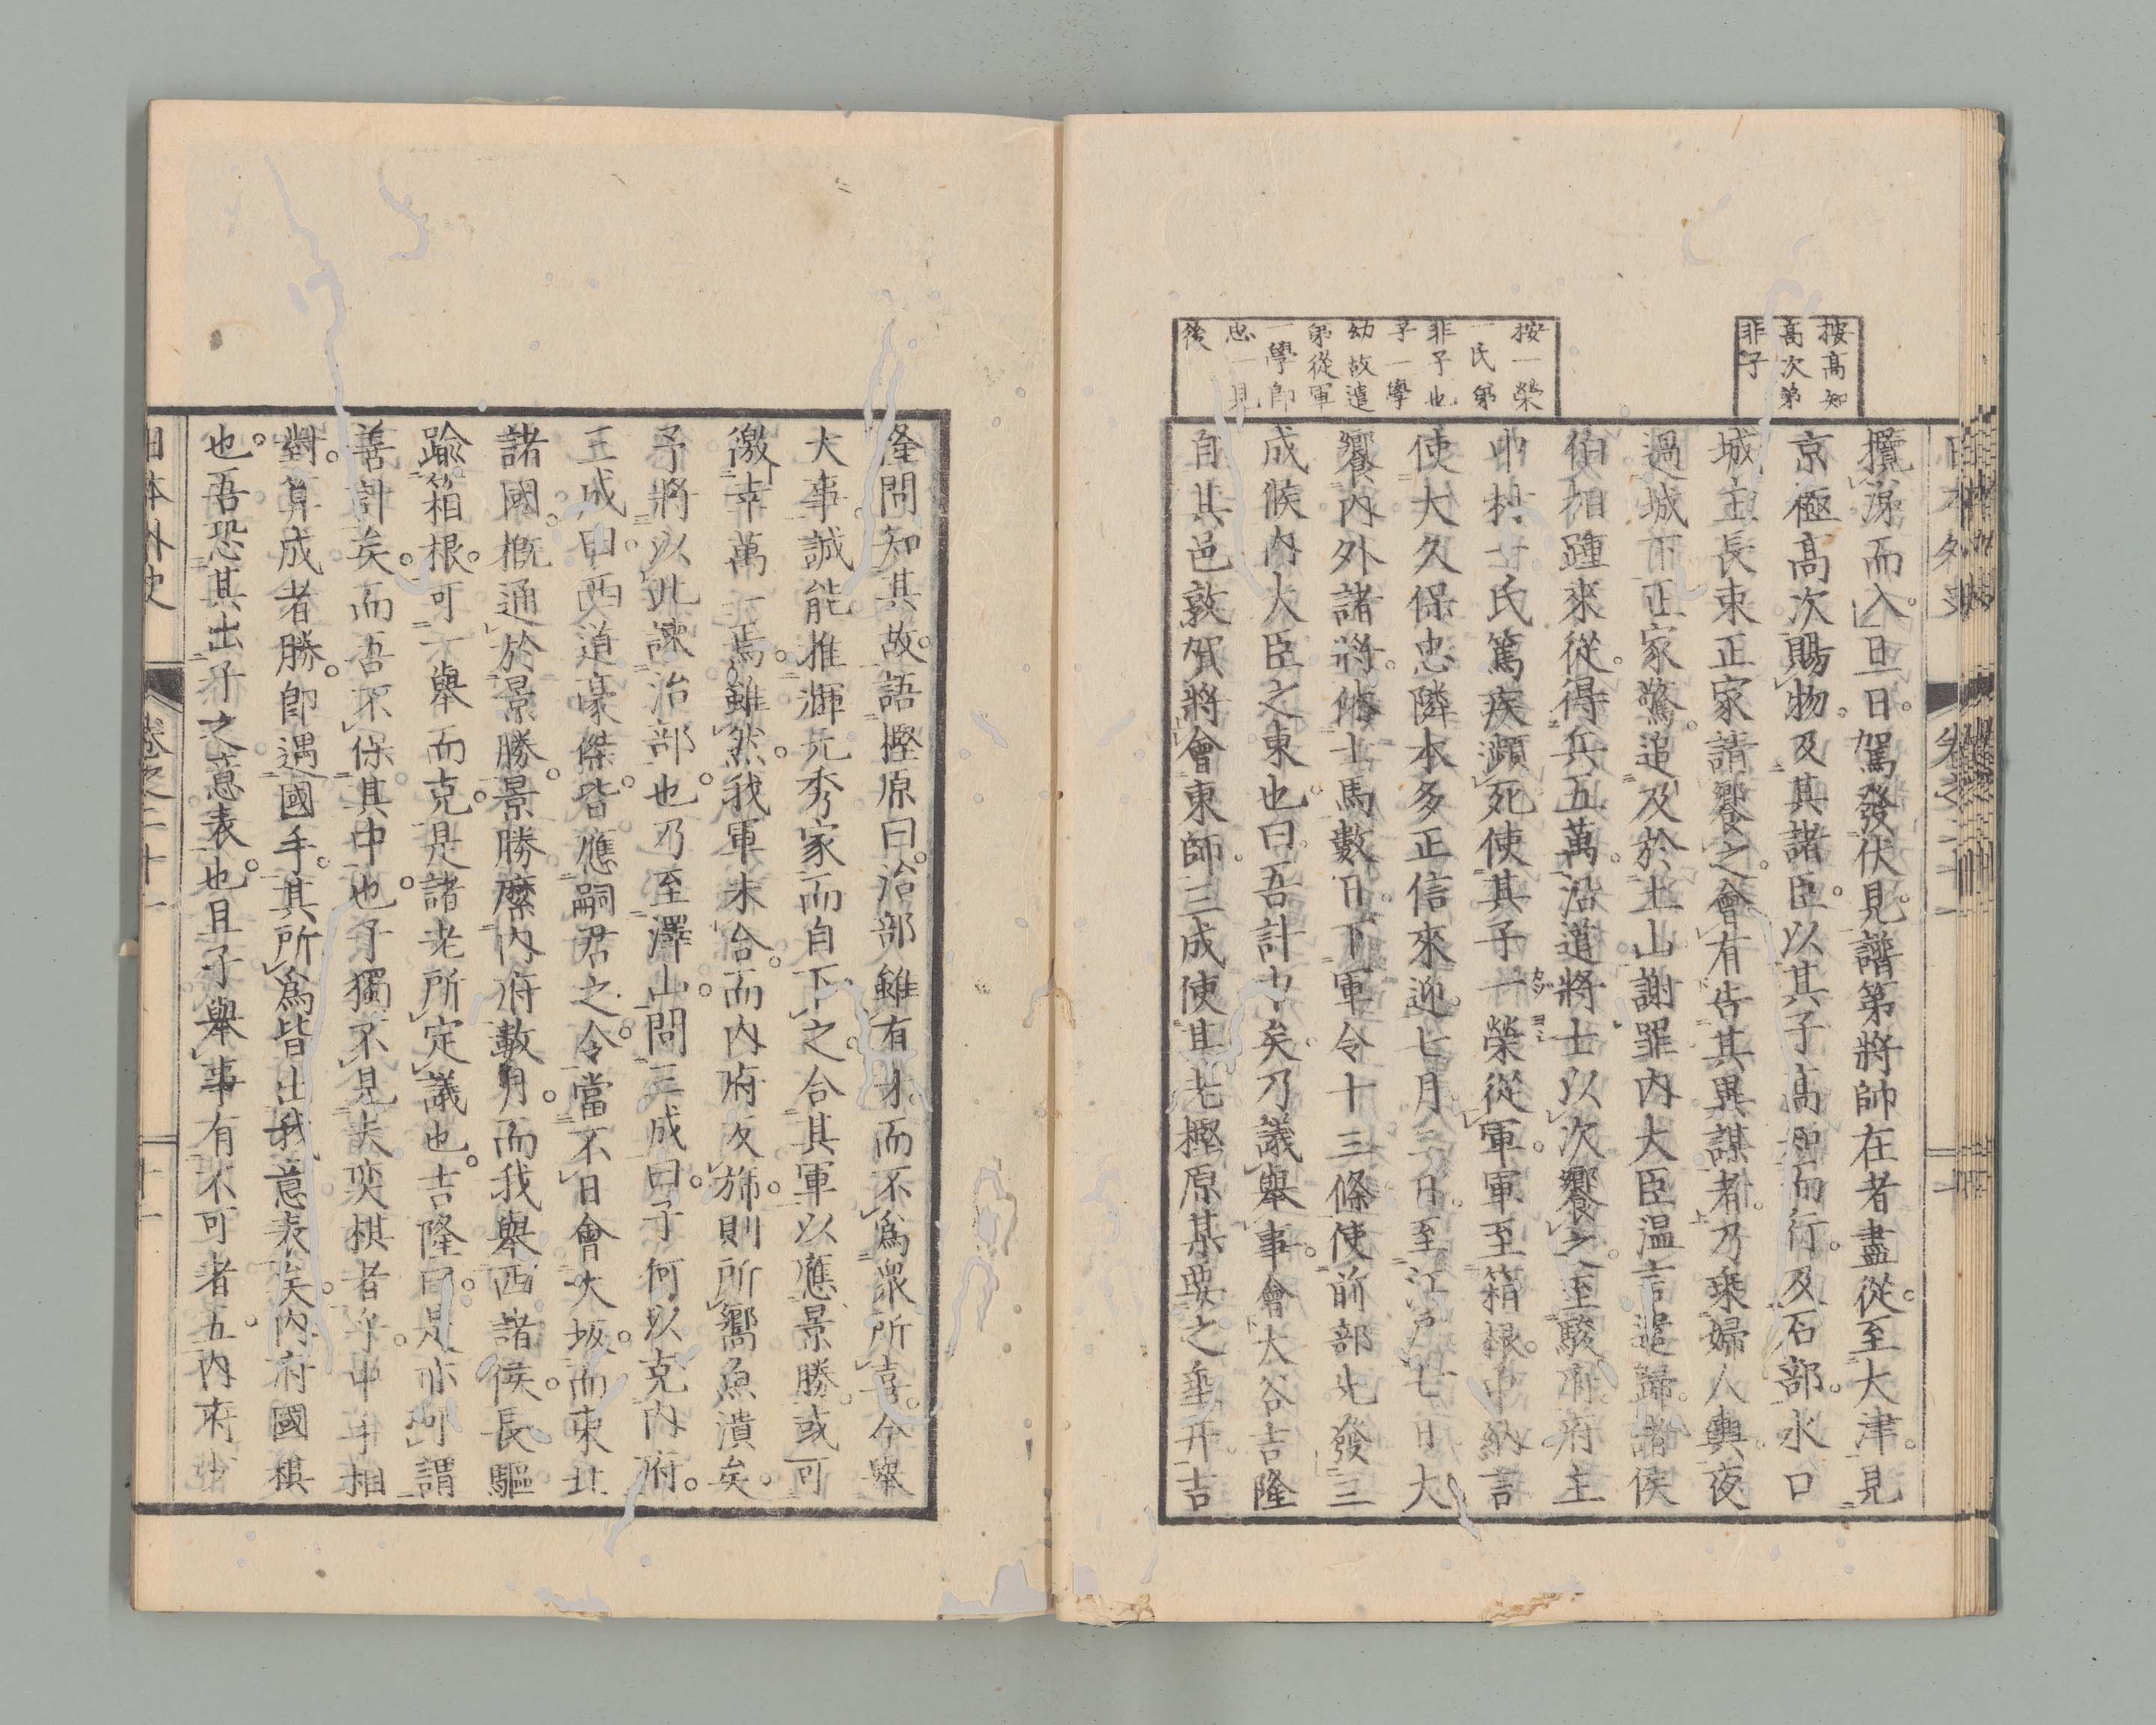 按高知
高次弟
非子
按一榮
一氏弟
非子也
子一學
幼故遣
弟從軍
一學即
忠一見
後
攬涕而入旦日駕發伏見譜第將師在者盡從至大津見
京極高次賜物及其諸臣以其子高知而行及石部水口
城主長束正家請饗之會有告其異謀者乃乘婦人輿夜
過城下正家驚追及於土山謝罪內大臣温言遣歸諸侯
伯相踵來從得兵五萬沿道將士以次饗之至駿府府主
中村一氏篤疾瀕死使其子一榮從軍軍至箱根中納言
使大久保忠隣本多正信來迎七月二日至江戶七日大
饗內外諸將脩士馬數日下軍令十三條使前部先發三
成候內大臣之東也曰吾計中矣乃議舉事會大谷吉隆
自其邑敦賀將會東師三成使其老樫原某要之垂井吉
隆問知其故語樫原曰治部雖有才而不爲衆所喜今舉
大事誠能推輝元秀家而自下之合其軍以應景勝或可
徼幸萬一焉雖然我軍未合而內府反旆則所嚮魚潰矣
予將以此諫治部也乃至澤山問三成曰子何以克內府
三成曰西道豪傑皆應嗣君之令當不日會大坂而東北
諸國概通於景勝景勝縻內府數月而我舉西諸侯長驅
踰箱根可一舉而克是諸老所定議也吉隆曰是亦可謂
善計矣而吾不保其中也子獨不見夫奕棋者乎中手相
對算成者勝即遇國手其所爲皆出我意表矣內府國棋
也吾恐其出子之意表也且子舉事有不可者五內府
日本外史
卷之二十一
十一